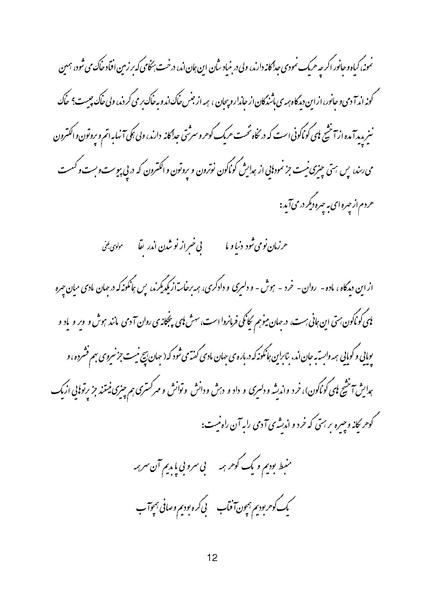 نمونه، گیاه و جانور اگرچه هریک نمودی جداگانه دارند، ولی در بنیاد شان این جان اند، درخت هنگامی که بر زمین افتاد خاک می شود، همین
گونه اند آدمی و جانور، از این دیدگاه همه ی باشندگان از جاندار و بیجان ، همه از جنس خاک اند و به خاک بر می گردند، ولی خاک چیست؟ خاک
نیز پدید آمده از آخشیج های گوناگونی است که در نگاه نخست هریک گوهر و سرشتی جداگانه دارند، ولی همگی آنها به اتم و پروتون و الکترون
می رسند، پس هستی چیزی نیست جز نمودهایی از همایش گوناگون نوترون و پروتون و الکترون که در پی پیوست و بست و گسست
هردم از چهره ای به چهره دیگر در می آید:
هر زمان نو می شود دنیا و ما بی خبر از نو شدن اندر بقا مولوی بلخی
از این دیدگاه ، ماده - روان - خرد - هوش - و دلیری و دادگری، همه برخاسته از یکدیگرند، پس چنانکه در جهان مادی میان چهره
های گوناگون هستی این جانی هست، در جهان مینو هم یگانگی فرمانروا است، سهش های پنجگانه ی روان آدمی مانند هوش و ویر و یاد و
بویایی و گویایی همه وابسته به جان اند. بنابراین چنانکه درباره ی جهان مادی گفته می شود که( جهان هیچ نیست جز نیروی بهم فشرده ، و
همایش آخشیج های گوناگون)، خرد و اندیشه و دلیری و داد و دهش و دانش و توانش و مهر گستری هم چیزی نیستند جز پرتوهایی از یک
گوهر یگانه و چیره بر هستی که خرد و اندیشه ی آدمی را به آن راه نیست:
منبسط بودیم و یک گوهر همه بی سر و بی پا بدیم آن سر همه
یک گوهر بودیم همچون آفتاب بی گره بودیم و صافی همچو آب
12